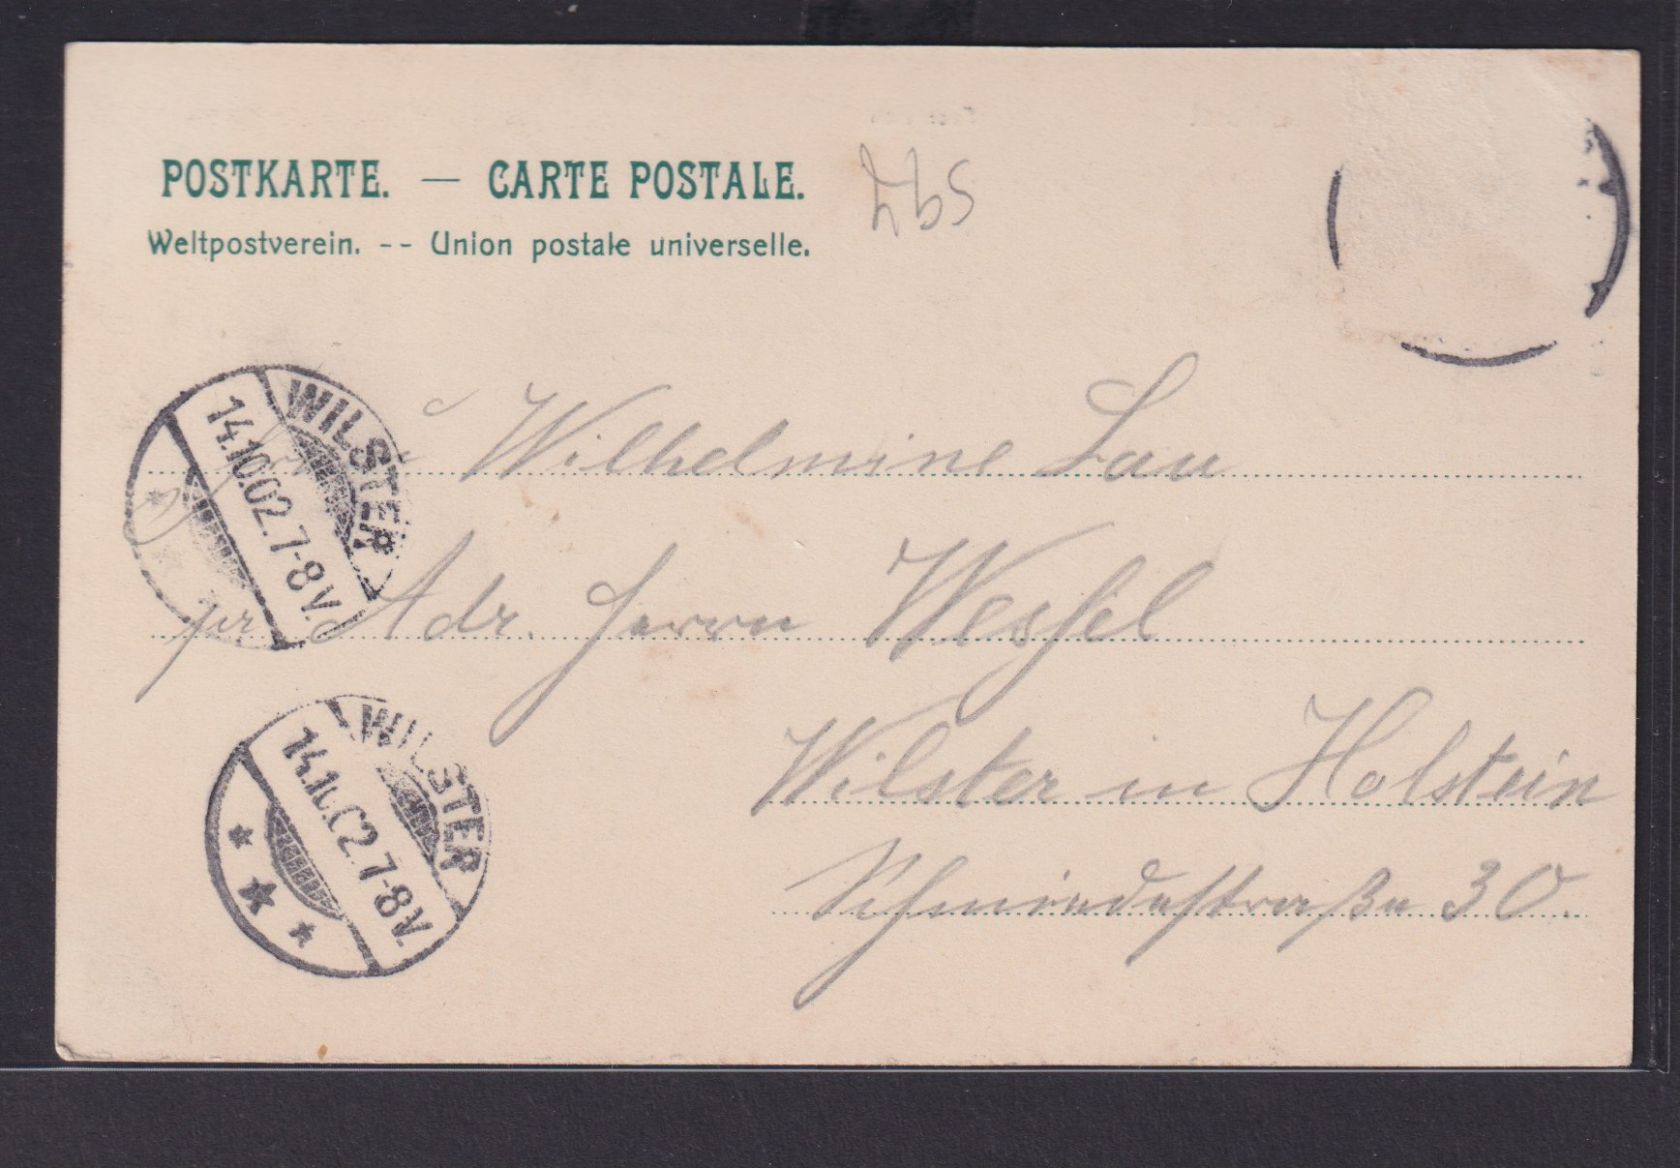 POSTKARTE. — CARTE POSTALE.
Weltpostverein. -- Union postale universelle.
Wilhelmine Lau
pr. Adr. Herrn Wessel
Wilster in Holstein
Schmiedestraße 30.
WILSTER
14.10.02.7-8V.
WILSTER
14.10.02.7-8V.